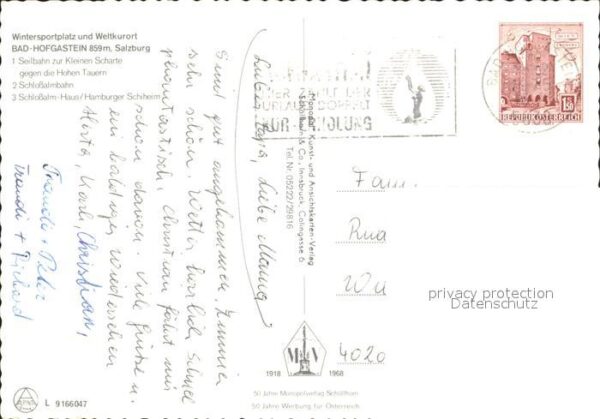 Wintersportplatz und Weltkurort
BAD-HOFGASTEIN 859 m, Salzburg
1 Seilbahn zur Kleinen Scharte
gegen die Hohen Tauern
2 Schloßalmbahn
3 Schloßalm-Haus/Hamburger Schiheim
Liebe Liebe Mama,
Sind gut angekommen, Zimmer
sehr schön, Wetter herrlich Schnee
phantastisch, Christian fährt mir
schon davon. Viele Grüsse u.
ein baldiges Wiedersehen
Herta, Karli, Christian,
Traudi + Peter
Traudi + Richard
HIER ZÄHLT DER
URLAUB DOPPELT
KUR-ERHOLUNG
BAD
1.50
REPUBLIK ÖSTERREICH
Kunst- und Ansichtskarten-Verlag
Schöllhorn & Co., Innsbruck, Colingasse 6
Tel. Nr. 05222/29816
Fam.
Rua
We
4020
privacy protection
Datenschutz
1918 1968
50 Jahre Monopolverlag Schöllhorn
50 Jahre Werbung für Österreich
L 9166047